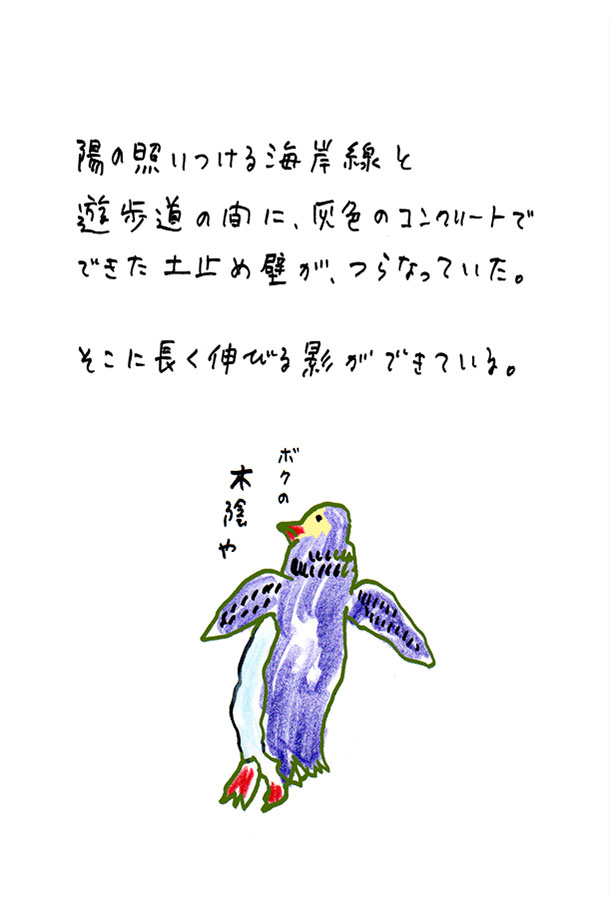 陽の照りつける海岸線と
遊歩道の間に、灰色のコンクリートで
できた土止め壁が、つらなっていた。
そこに長く伸びる影ができている。
ボクの
木陰や